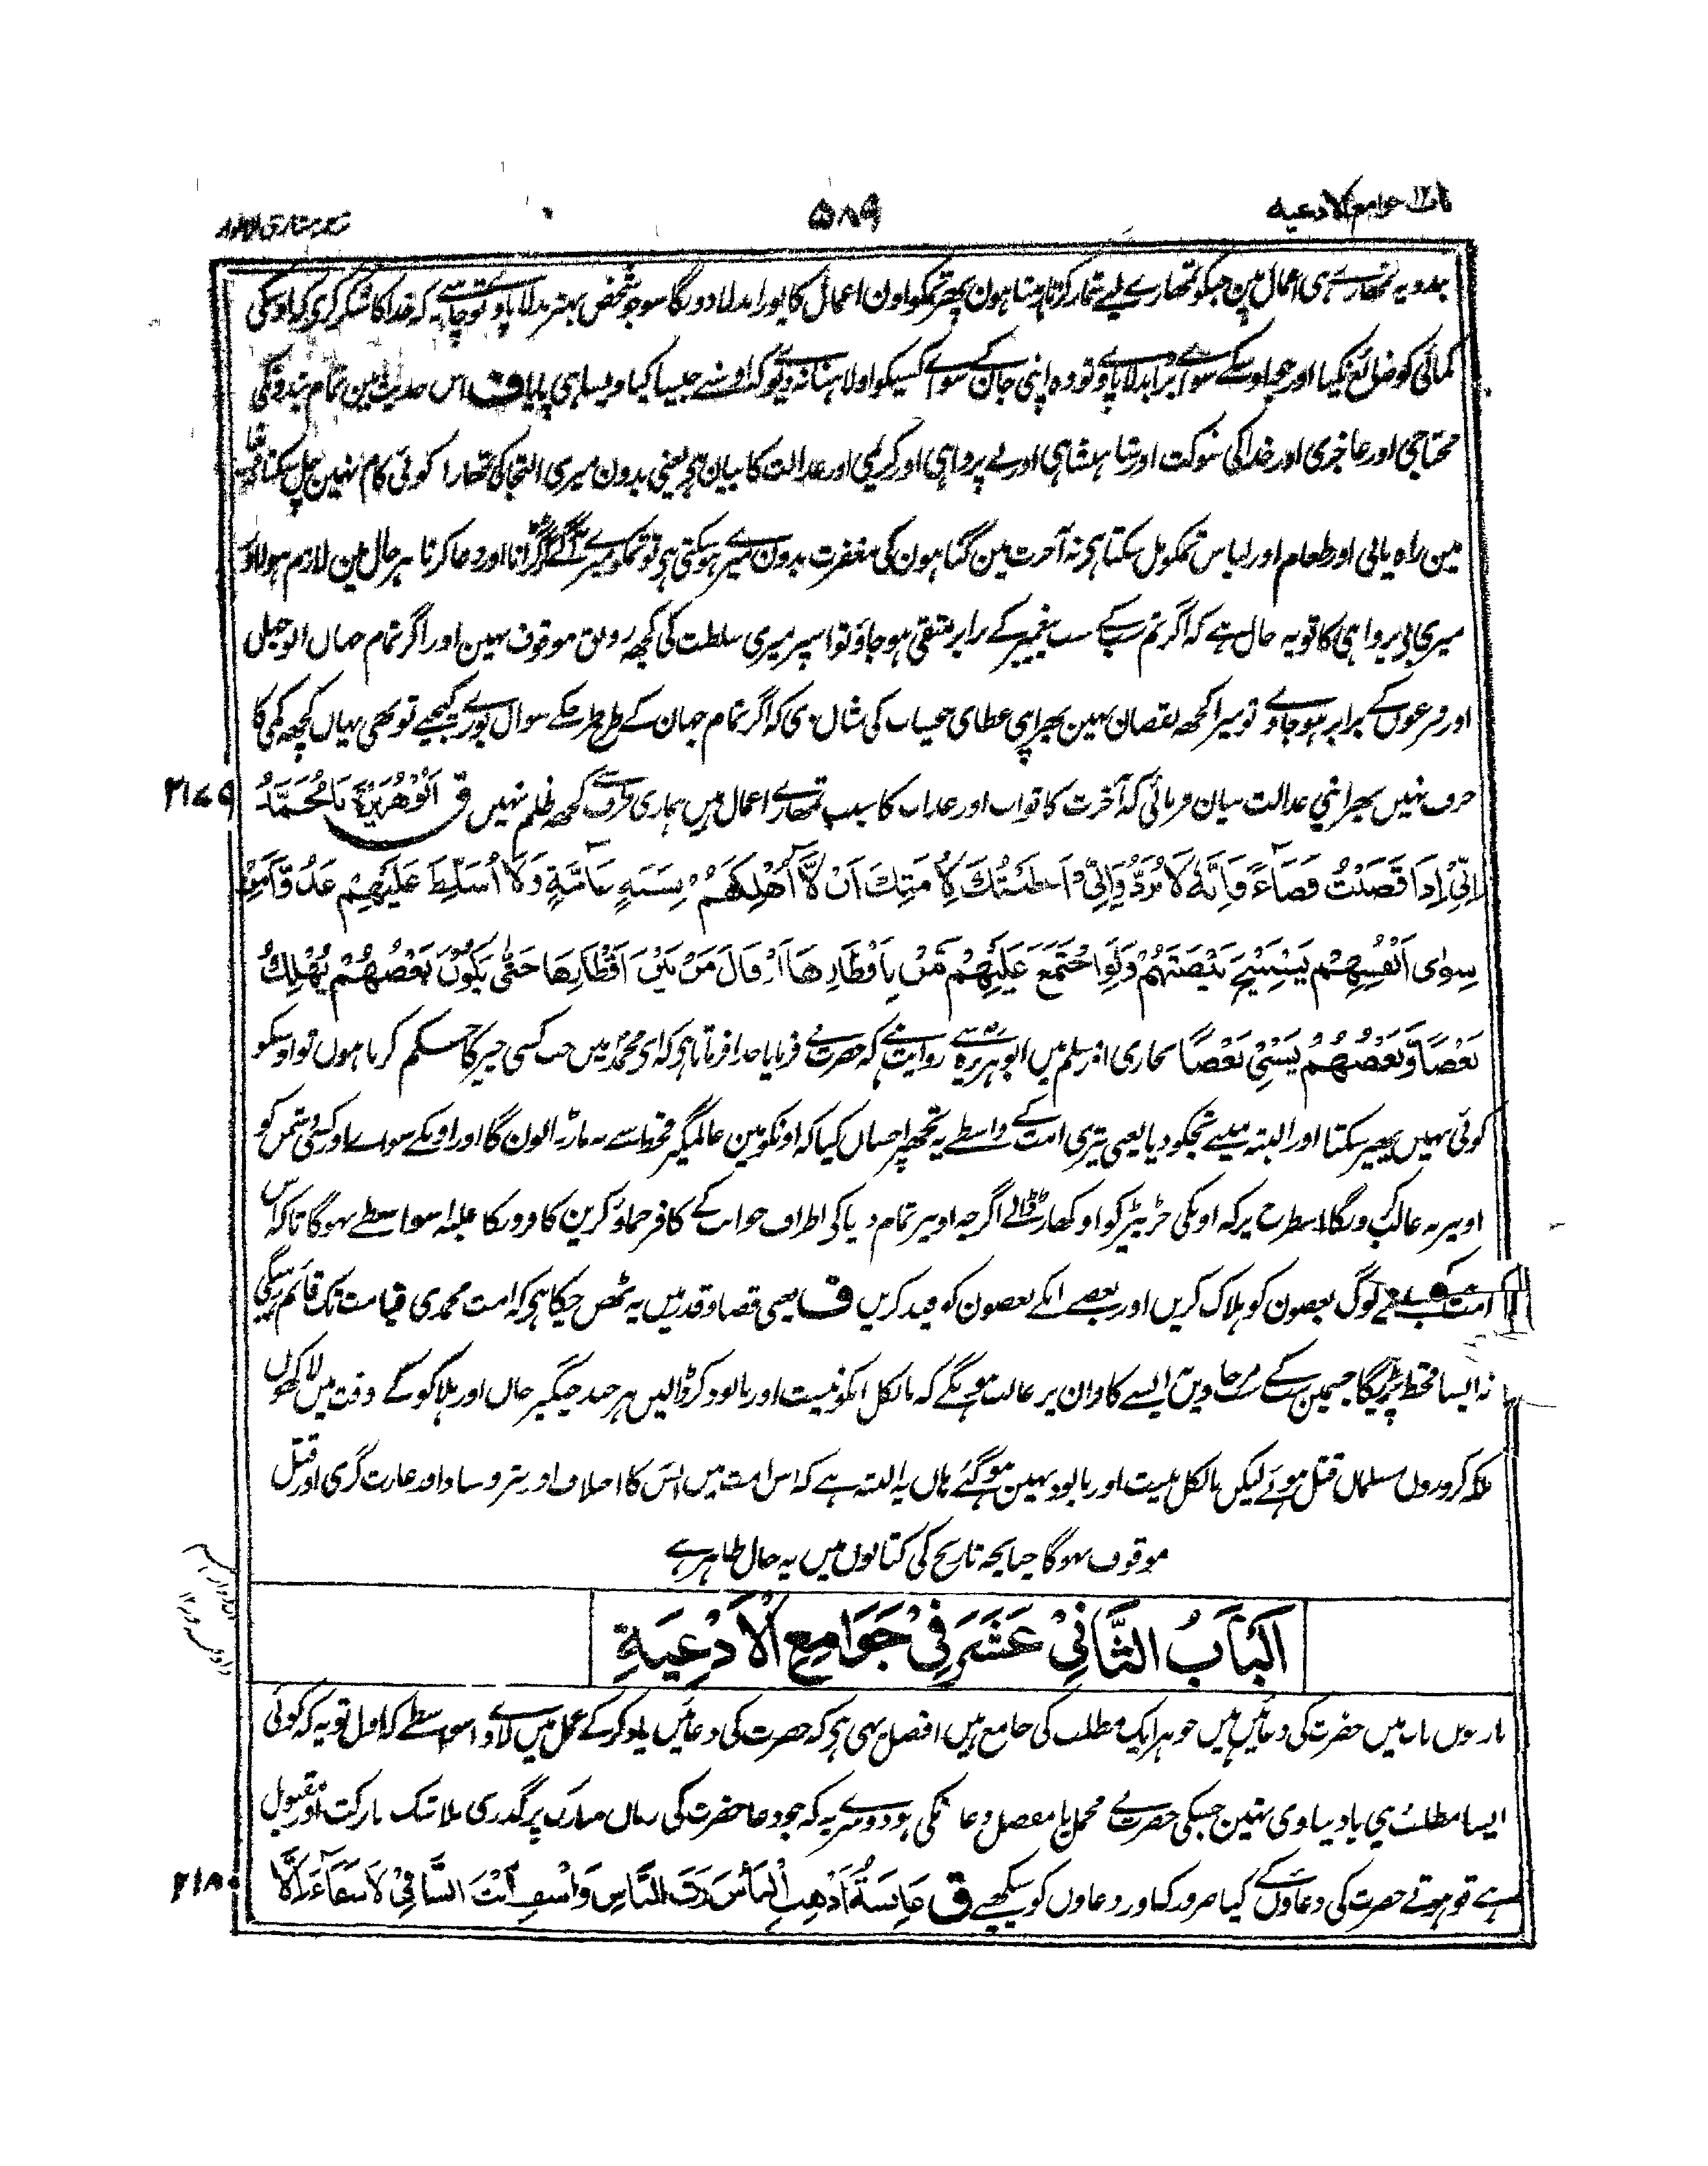 باب ١٢ جوامع الادعیه
٥٨٩
بندو یہ تمھارے ہی اعمال ہین جنکو تمھارے لیے شمار کرتا رہتا ہون پھر تمکو اون اعمال کا پورا بدلا دونگا سو جو شخص بہتر بدلا پاوے تو چاہیے کہ خدا کا شکر کری کہ اوسکی
کمائی کو ضائع نکیا اور جو اوسکے سواے برا بدلا پاوے تو وہ اپنی جان کے سواے کسیکو اولاہنا ندیوے کہ اوسنے جیسا کیا ویسا ہی پایا ف اس حدیث مین تمام بندونکی
محتاجی اور عاجزی اور خدا کی شوکت اور شاہنشاہی اور بے پرواہی اور کریمی اور عدالت کا بیان ہے یعنی بدون میری التجا کے تمھارا کوئی کام نہین چل سکتا
مین راہ یابی اور طعام اور لباس تمکو مل سکتا ہی نہ آخرت مین گناہون کی مغفرت بدون میرے ہو سکتی ہی تو تمکو میرے آگے گڑگڑانا اور دعا کرنا ہر حال مین لازم ہوا اور
میری بے پرواہی کا تو یہ حال ہے کہ اگر تم سب کے سب پیغمبر کے برابر متقی ہو جاؤ تو اسپر میری سلطنت کی کچھ رونق موقوف نہین اور اگر تمام جہاں ابو جہل
اور فرعوں کے برابر ہو جاوے تو میرا کچھ نقصان نہین پھر اپنی عطای بیحساب کی مثال دی کہ اگر تمام جہان کے طرح طرحکے سوال پورے کیجیے تو بھی یہاں کچھ کمی کا
حرف نہیں پھر اپنی عدالت بیان فرمائی کہ آخرت کا ثواب اور عذاب کا سبب تمھارے اعمال ہیں ہماری طرف سے کچھ ظلم نہیں ق اَبُوْهُرَيْرَةَ يَا مُحَمَّدُ
٢١٧٩
اِنِّيْ اِذَا قَضَيْتُ قَضَآءً فَاِنَّهٗ لَا يُرَدُّ وَاِنِّيْ اَعْطَيْتُكَ لِاُمَّتِكَ اَنْ لَّا اُهْلِكَهُمْ بِسَنَةٍ عَامَّةٍ وَلَا اُسَلِّطَ عَلَيْهِمْ عَدُوًّا مِّنْ
سِوٰى اَنْفُسِهِمْ يَسْتَبِيْحُ بَيْضَتَهُمْ وَلَوِ اجْتَمَعَ عَلَيْهِمْ مَنْ بِاَقْطَارِهَا اَوْ قَالَ مَنْ بَيْنَ اَقْطَارِهَا حَتّٰى يَكُوْنَ بَعْضُهُمْ يُهْلِكُ
بَعْضًا وَّبَعْضُهُمْ يَسْبِيْ بَعْضًا بخاری اور مسلم میں ابو ہریرہ سے روایت ہے کہ حضرت نے فرمایا خدا فرماتا ہی کہ ای محمد میں جب کسی چیز کا حکم کرتا ہوں تو اوسکو
کوئی نہیں پھیر سکتا اور البتہ میںنے تجھکو دیا یعنی تیری امت کے واسطے یہ تجھپر احساں کیا کہ اونکو مین عالمگیر قحط سے نہ مار ڈالون گا اور اونکے سواے اور کسی دشمں کو
اوںپر نہ غالب کرونگا اسطرح پر کہ اونکی جڑ پیڑ کو اوکھاڑ ڈالے اگرچہ اوںپر تمام دنیا کی اطراف جوانب کے کافر جماو کرین کافروںکا غلبہ اسواسطے نہوگا تاکہ اس
امت کے بعضے لوگ بعضون کو ہلاک کریں اور بعضے انکے بعضون کو قید کریں ف یعنی قضا و قدر میں یہ ٹھہر چکا ہی کہ امت محمدی قیامت تک قائم رہیگی
نہ ایسا قحط پڑیگا جسمین سب کے سب مر جاویں نہ ایسے کافر اون پر غالب ہونگے کہ بالکل انکو نیست اور نابود کر ڈالیں ہر چند چنگیز خاں اور ہلاکو کے وقت میں لاکھوں
بلکہ کروروں مسلماں قتل ہوئے لیکں بالکل نیست اور نابود نہین ہو گئے ہاں یہ البتہ ہے کہ اس امت میں آپس کا اختلاف اور شر و فساد اور غارت گری اور قتل
موقوف نہوگا چنانچہ تاریخ کی کتابوں میں یہ حال ظاہر ہے
اَلْبَابُ الثَّانِيْ عَشَرَ فِيْ جَوَامِعِ الْاَدْعِيَةِ
بارہویں باب میں حضرت کی دعائیں ہیں جو ہر ایک مطلب کی جامع ہیں افضل یہی ہی کہ حضرت کی دعائیں یاد کر کے عمل میں لاوے اسواسطے کہ اول تو یہ کہ کوئی
ایسا مطلب دینی یا دنیاوی نہین جسکی حضرت نے مجمل یا مفصل دعا نکی ہو دوسرے یہ کہ جو دعا حضرت کی زباں مبارک پر گذری بلا شک بابرکت اور مقبول
ہے تو ہوتے حضرت کی دعاوں کے کیا ضرور کہ اور دعاوں کو سیکھیے ق عَايِشَةُ اَذْهِبِ الْبَأْسَ رَبَّ النَّاسِ وَاشْفِ اَنْتَ الشَّافِيْ لَا شِفَآءَ اِلَّا
٢١٨٠